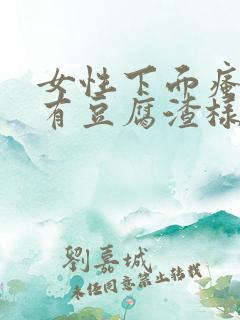 女性下面瘙
有豆腐渣样
劉嘉城
未经同意禁止转载